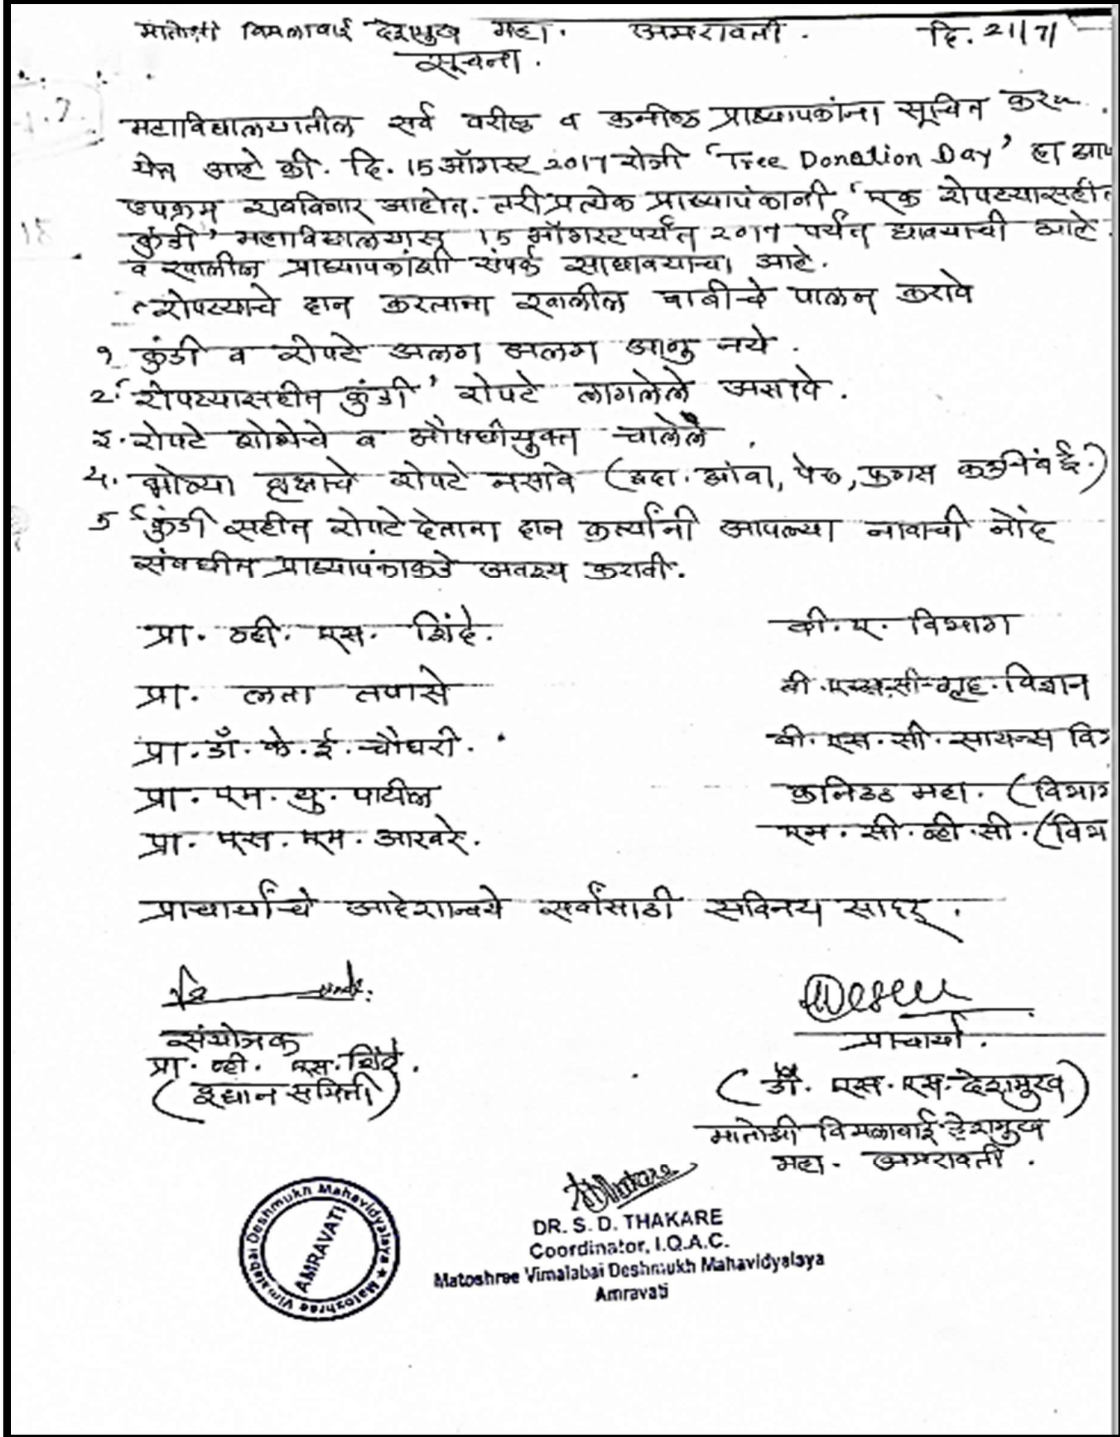 मातोश्री विमलाबाई देशमुख महा. अमरावती. दि. 21/7/
सूचना.
महाविद्यालयातील सर्व वरीष्ठ व कनीष्ठ प्राध्यापकांना सूचित कर
येत आहे की. दि. 15 ऑगस्ट 2017 रोजी 'Tree Donation Day' हा आप
उपक्रम राबविणार आहोत. तरी प्रत्येक प्राध्यापकांनी 'एक रोपट्यासहीत
कुंडी' महाविद्यालयास 15 ऑगस्टपर्यंत 2017 पर्यंत द्यावयाची आहे.
व खालील प्राध्यापकांशी संपर्क साधावयाचा आहे.
रोपट्याचे दान करताना खालील बाबीचे पालन करावे
१. कुंडी व रोपटे अलग अलग आणु नये.
2. 'रोपट्यासहीत कुंडी' रोपटे लागलेले असावे.
३. रोपटे शोभेचे व औषधीयुक्त चालेले.
4. मोठ्या वृक्षाचे रोपटे नसावे (उदा. आंबा, पेरु, फणस कडुनिंब ई.)
5 'कुंडी सहीत रोपटे देताना दान कर्त्यांनी आपल्या नावाची नोंद
संबधीत प्राध्यापकाकडे अवश्य करावी.
प्रा. व्ही. एस. शिंदे. बी. ए. विभाग
प्रा. लता तपासे बी. एस्स.सी-गृह. विज्ञान
प्रा. डॉ. के. ई. चौधरी. बी. एस. सी. सायन्स वि
प्रा. एम. यु. पाटील कनिष्ठ महा. (विभाग
प्रा. एस. एम. आखरे. एम. सी. व्ही. सी. (विभ
प्राचार्यांचे आदेशान्वये सर्वांसाठी सविनय सादर.
संयोजक प्राचार्य.
प्रा. व्ही. एस. शिंदे.
(उद्यान समिती) (डॉ. एस. एस. देशमुख)
मातोश्री विमलाबाई देशमुख
महा. अमरावती.
DR. S. D. THAKARE
Coordinator, I.Q.A.C.
Matoshree Vimalabai Deshmukh Mahavidyalaya
Amravati
Matoshree Vimalabai Deshmukh Mahavidyalaya ★
AMRAVATI